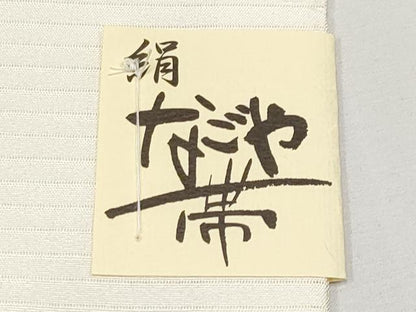 絹
なごや
帯